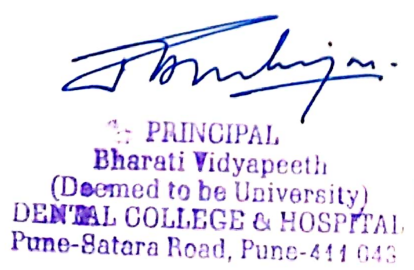 PRINCIPAL
Bharati Vidyapeeth
(Deemed to be University)
DENTAL COLLEGE & HOSPITAL
Pune-Satara Road, Pune-411 043